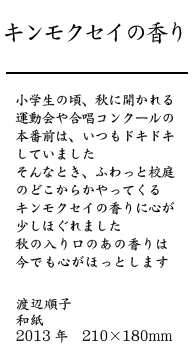 キンモクセイの香り
小学生の頃、秋に開かれる
運動会や合唱コンクールの
本番前は、いつもドキドキ
していました
そんなとき、ふわっと校庭
のどこからかやってくる
キンモクセイの香りに心が
少しほぐれました
秋の入り口のあの香りは
今でも心がほっとします
渡辺順子
和紙
2013 年　210×180mm